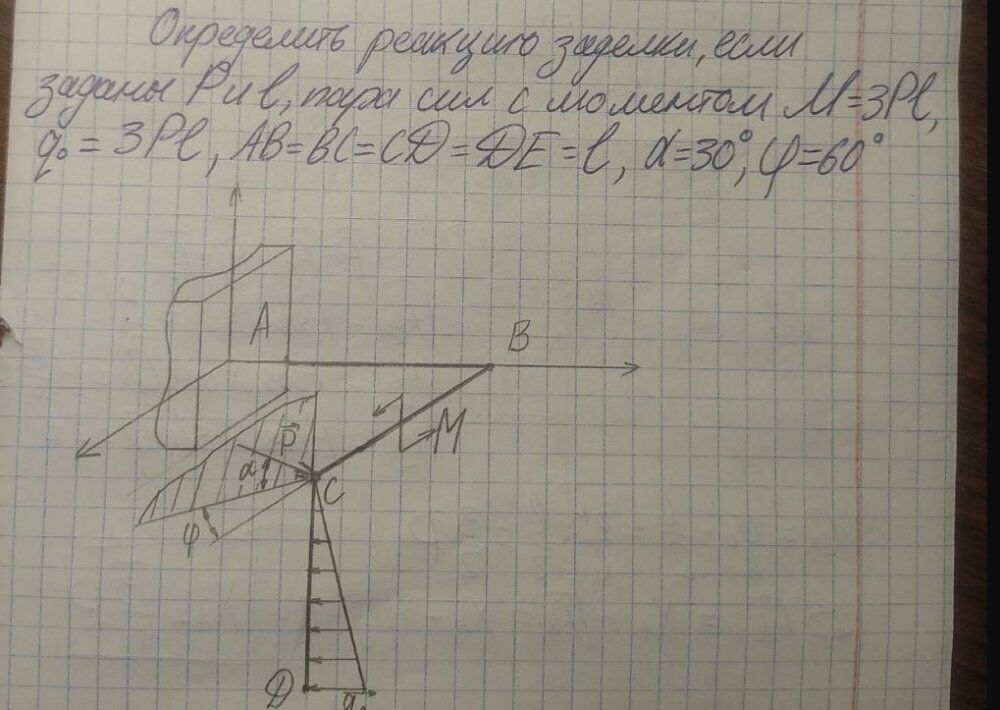 Определить реакцию заделки, если
заданы P и l, пара сил с моментом M=3Pl,
q₀ = 3Pl, AB=BC=CD=DE=l, α=30°, φ=60°
A
B
P
M
α
C
φ
D
q₀